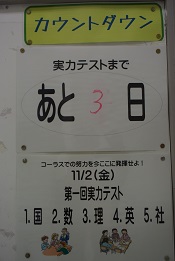 カウントダウン
実力テストまで
あと 3 日
コーラスでの努力を今ここに発揮せよ!
11/2(金)
第一回実力テスト
1.国 2.数 3.理 4.英 5.社